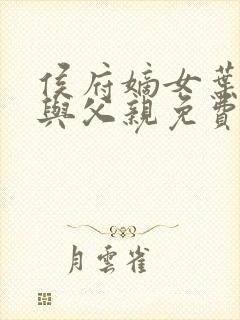 侯府嫡女葉
與父親免費
月雲雀